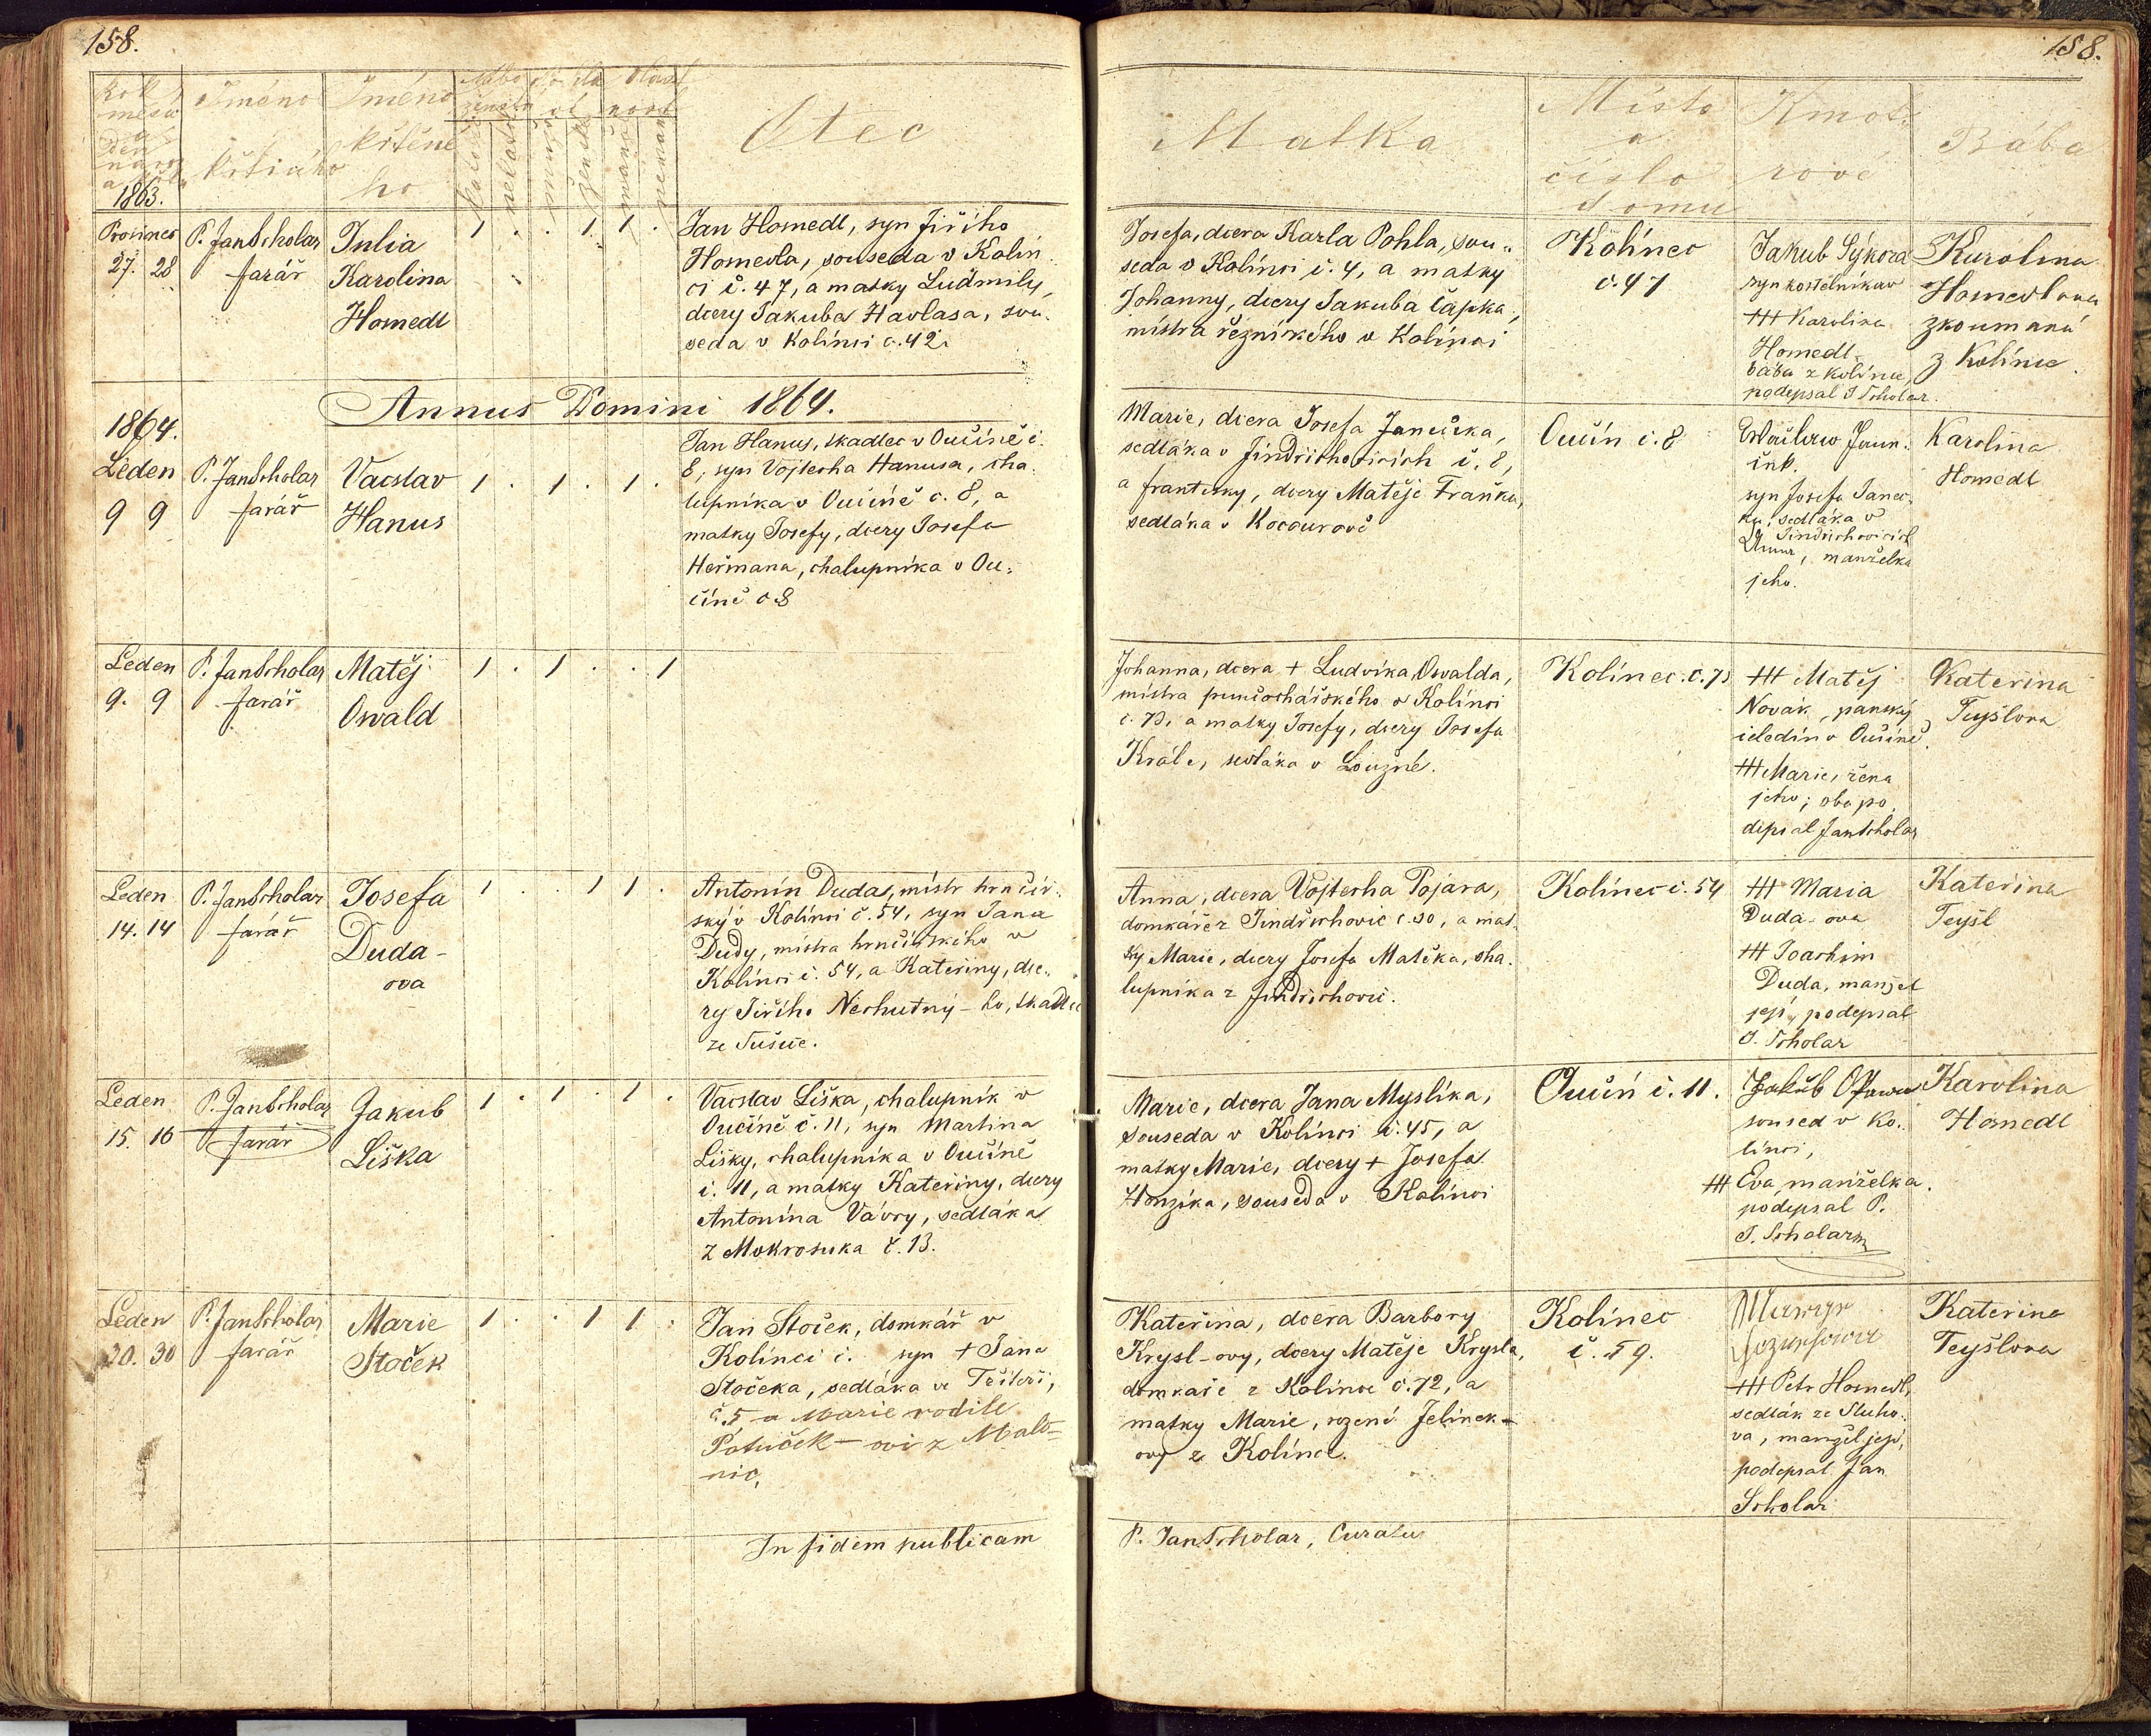 158.
158.
Jméno
Jméno
Otec
Matka
Místo
Kmot-
Bába
křtícího
křtěné
ho
a
číslo
domu
rové
1863.
Prosinec
27. 28
P. Jan Scholar
farář
Julia
Karolina
Homedl
1 . . 1 1 .
Jan Homedl, syn Jiřího
Homedla, souseda v Kolín
ci č. 47, a matky Ludmily,
dcery Jakuba Havlasa, sou-
seda v Kolínci č. 42.
Josefa, dcera Karla Pohla, sou-
seda v Kolínci č. 4, a matky
Johanny, dcery Jakuba Čapka,
mistra řeznického v Kolínci
Kolínec
č. 47
Jakub Sýkora
syn kostelníkův
+++ Karolina
Homedl
bába z Kolínce,
podepsal J Scholar.
Karolina
Homedlova
zkoumaná
z Kolínce.
Annus Domini 1864.
1864.
Leden
9 9
P. Jan Scholar
farář
Vacslav
Hanus
1 . 1 . 1 .
Jan Hanus, tkadlec v Oučíně č.
8, syn Vojtecha Hanusa, cha-
lupníka v Oučíně č. 8, a
matky Josefy, dcery Josefa
Heřmana, chalupníka v Ou-
číně č 8
Marie, dcera Josefa Janečka,
sedláka v Jindřichovicích č. 8,
a Frantisky, dcery Matěje Fraňka,
sedláka v Kocourově
Oučín č. 8
syn Josefa Janeč-
ka, sedláka v
Jindřichovicích
Anna, manželka
jeho.
Karolina
Homedl
Leden
9. 9
P. Jan Scholar
farář
Matěj
Oswald
1 . 1 . . 1
Johanna, dcera + Ludvíka Oswalda,
mistra punčochářského v Kolínci
č. 73, a matky Josefy, dcery Josefa
Krále, sedláka v Loužné.
Kolínec. č. 73
+++ Matěj
Novák, panský
čeledín v Oučíně,
+++ Marie, žena
jeho; oba po-
depsal Jan Scholar
Katerina
Teyšlova
Leden
14. 14
P. Jan Scholar
farář
Josefa
Duda-
ova
1 . . 1 1 .
Antonín Duda, mistr hrnčíř-
ský v Kolínci č. 54, syn Jana
Dudy, mistra hrnčířského v
Kolínci č. 54, a Kateřiny, dce-
ry Jiřího Nechutný-ho, tkadlce
ze Sušice.
Anna, dcera Vojtecha Pojara,
domkáře z Jindřichovic č. 30, a mat-
ky Marie, dcery Josefa Matěka, cha-
lupníka z Jindřichovic.
Kolínec č. 54
+++ Maria
Duda-ova
+++ Joachim
Duda, manžel
její, podepsal
J. Scholar
Kateřina
Teyšl
Leden
15. 16
P. Jan Scholar
farář
Jakub
Liška
1 . 1 . 1 .
Vacslav Liška, chalupník v
Oučíně č. 11, syn Martina
Lišky, chalupníka v Oučíně
č. 11, a matky Kateřiny, dcery
Antonína Vávry, sedláka
z Mokrosuka č. 13.
Marie, dcera Jana Myslíka,
souseda v Kolínci č. 45, a
matky Marie, dcery + Josefa
Honzíka, souseda v Kolínci
Oučín č. 11.
Jakub
soused v Ko-
línci,
+++ Eva, manželka.
podepsal P.
J. Scholar
Karolina
Homedl
Leden
30. 30
P. Jan Scholar
farář
Marie
Stoček
1 . . 1 1 .
Jan Stoček, domkář v
Kolínci č. syn + Jana
Stočeka, sedláka v
č. 5 a Marie rodilé
z Malo-
nic,
Kateřina, dcera Barbory
Krysl-ovy, dcery Matěje Krysla,
domkáře z Kolínce č. 72, a
matky Marie, rozené Jelínek-
ovy z Kolínce.
Kolínec
č. 59.
+++ Petr Homedl,
sedlák ze Sluho-
va, manžel její,
podepsal Jan
Scholar
Katerina
Teyšlova
In fidem publicam
P. Jan Scholar, Curatus